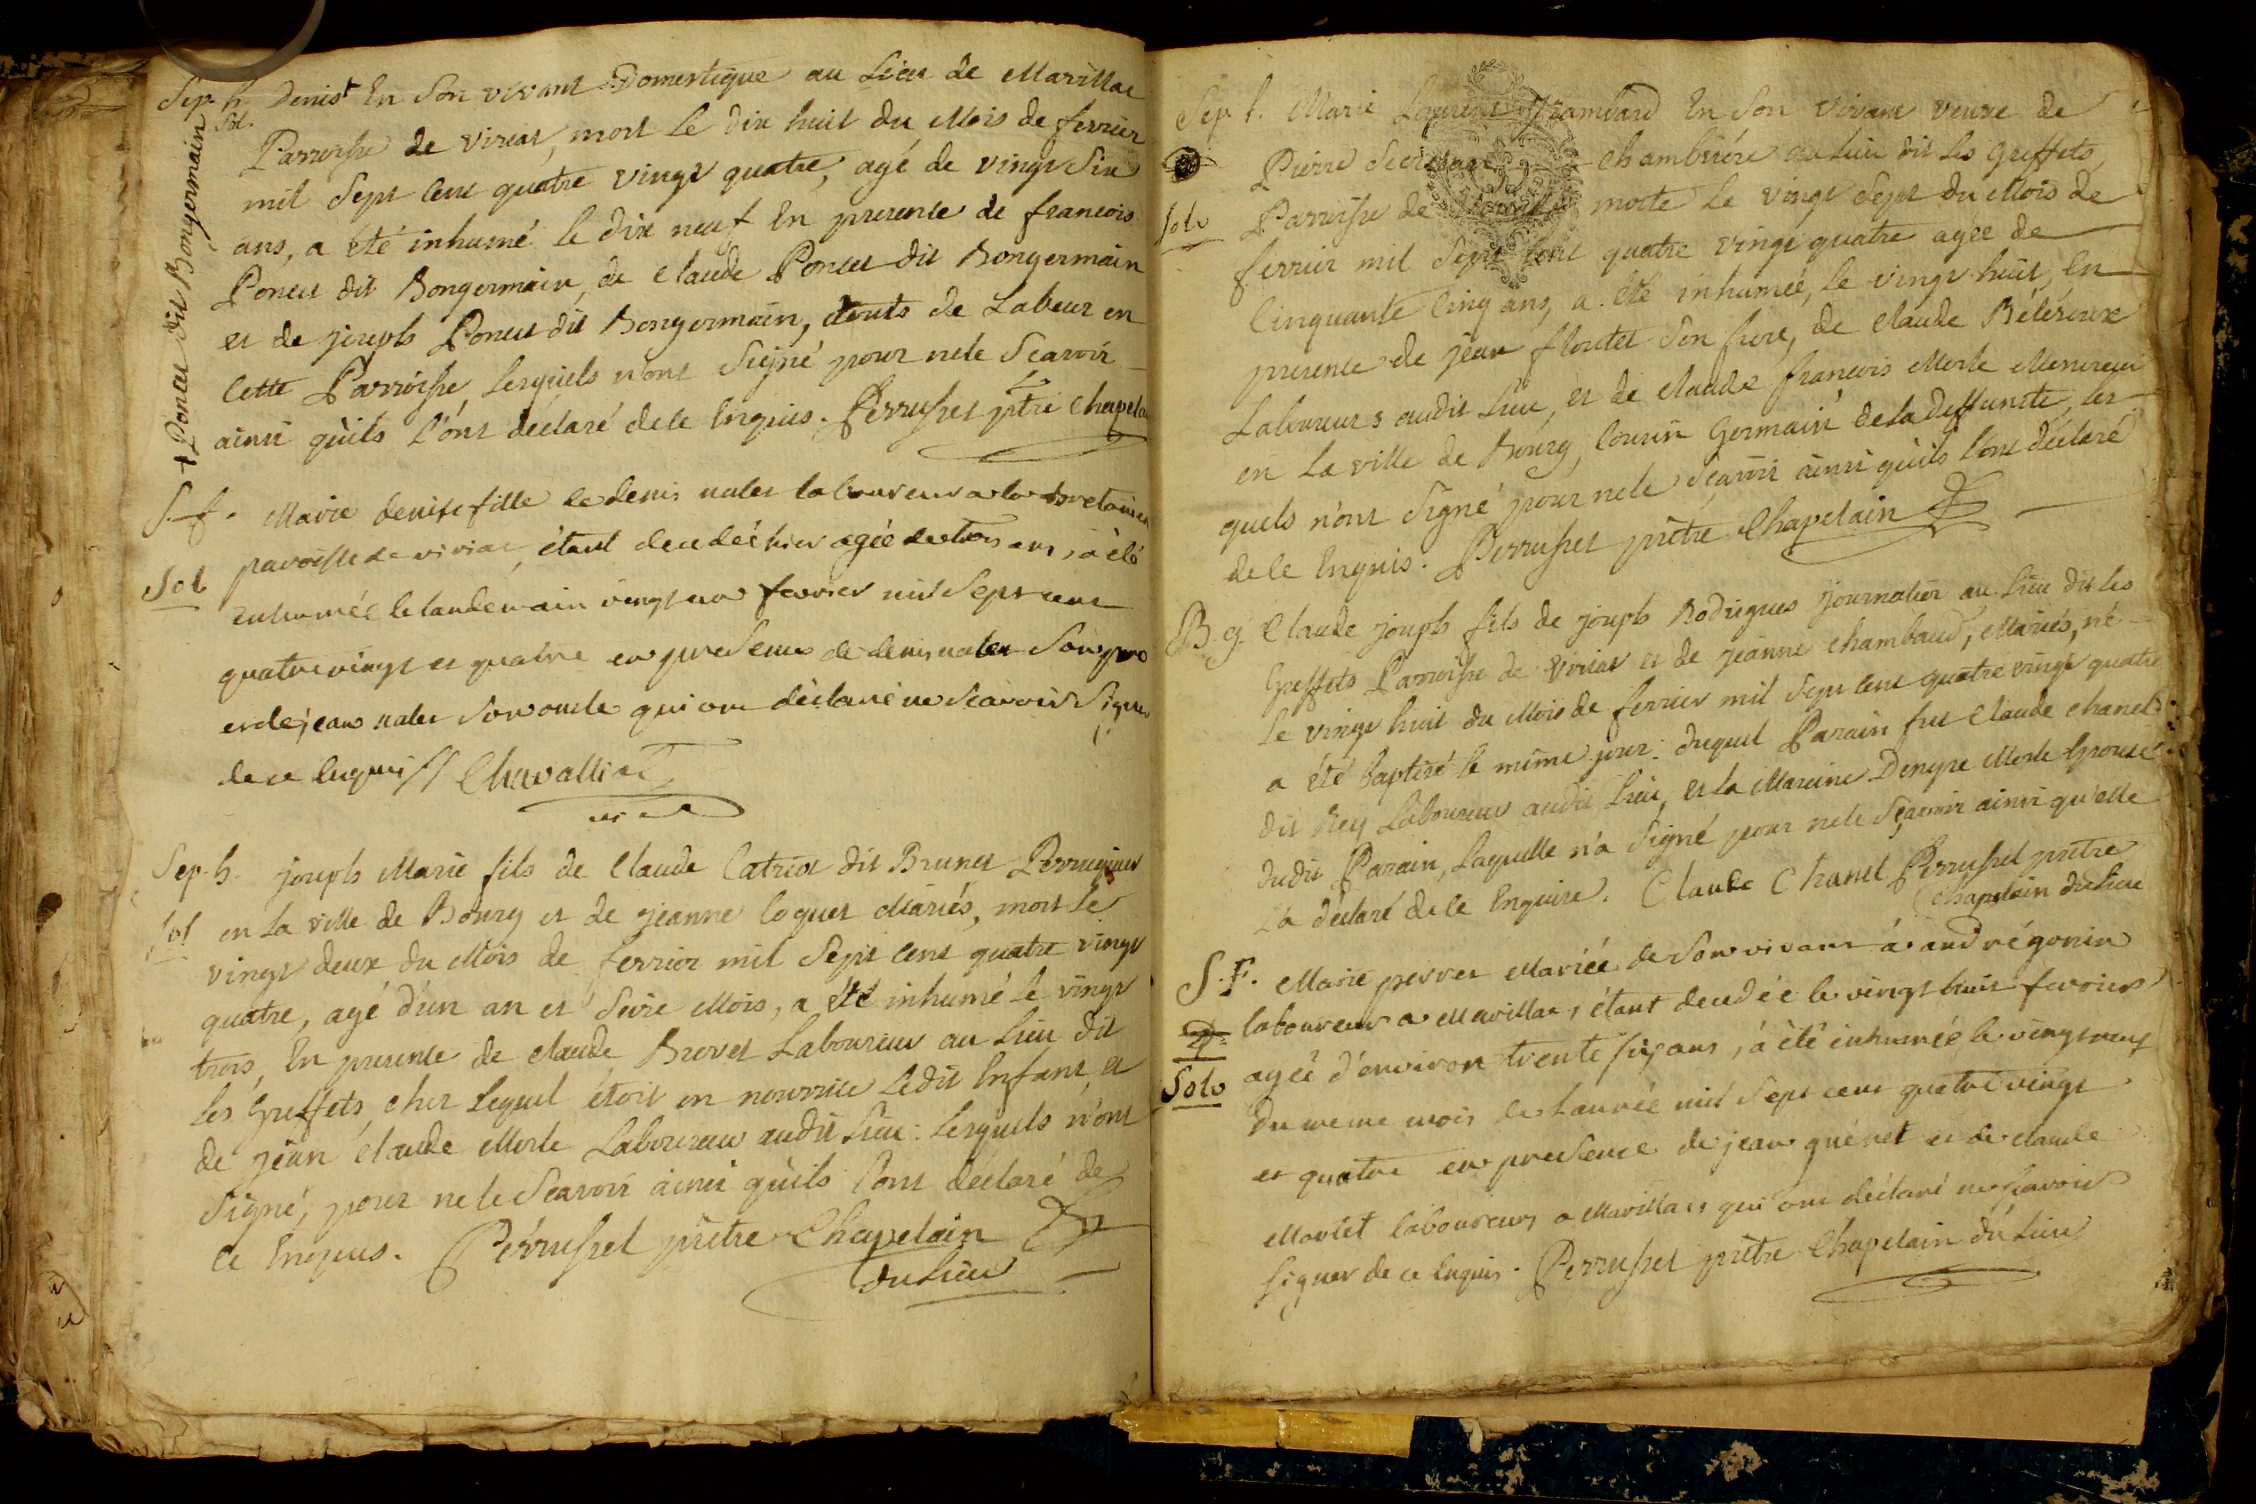 Sep. h. Denis + En Son vivant Domestique au Lieu de Marillac
Sol.
+ Poncet dit Bongermain
Parroisse de viriat, mort le dix huit du Mois de fevrier
mil Sept Cent quatre vingt quatre, agé de vingt Six
ans, a été inhumé le dix neuf En presence de francois
Poncet dit Bongermain, de Claude Poncet dit Bongermain
et de joseph Poncet dit Bongermain, touts de Labeur en
Cette Parroisse, Lesquels n'ont Signé pour ne le Scavoir
ainsi qu'ils l'ont déclaré de ce Enquis. Perrussel ptre Chapelain
S. f. Marie denise fille de denis laboureur a la
Sol
paroisse de viriat, étant decedée hier agée de trois ans, a été
enhumée le landemain vingt un fevrier mil Sept cent
quatre vingt et quatre en presence de denis Son pere
et de jean Son oncle qui ont déclaré ne Scavoir Signer
de ce Enquis // Chavalliat
Sep. h. joseph Marie fils de Claude Catriot dit Brunet Perruquier
Sol
en La ville de Bourg et de jeanne Coquet Mariés, mort le
vingt deux du Mois de fevrier mil Sept Cent quatre vingt
quatre, agé d'un an et Seize Mois, a été inhumé le vingt
trois, En presence de Claude Brevet Laboureur au Lieu dit
Les Greffets, chez Lequel étoit en nourrice Ledit Enfant, et
de jean Claude Merle Laboureur audit Lieu: Lesquels n'ont
Signé, pour ne le Scavoir ainsi qu'ils l'ont déclaré de
Ce Enquis. Perrussel prêtre Chapelain
du Lieu
Sep. f. Marie En Son Vivant veuve de
Pierre Chambriére au Lieu dit Les Greffets,
Solv
Parroisse de morte Le vingt Sept du Mois de
fevrier mil Sept Cent quatre vingt quatre agée de
Cinquante Cinq ans, a été inhumée, le vingt huit, En
presence de jean floutet Son frere, de Claude
Laboureurs audit Lieu, et de Claude francois Merle
en La ville de Bourg, Cousin Germain de La deffuncte, les
quels n'ont Signé pour ne le Scavoir ainsi qu'ils l'ont déclaré
de ce Enquis. Perrussel prêtre Chapelain
B. g. Claude joseph fils de joseph Rodrigues journalier au Lieu dit les
Greffets Parroisse de Viriat et de jeanne Chambaud, Mariés, né
Le vingt huit du Mois de fevrier mil Sept Cent quatre vingt quatre
a été baptisé le même jour: duquel Parain fut Claude Chanel
dit Rey Laboureur audit Lieu, et la Mareine Denyse Merle Epouse
dudit Parain, Laquelle n'a Signé pour ne le Scavoir ainsi qu'elle
L'a déclaré de ce Enquise. Claude Chanel Perrussel prêtre
Chapelain du Lieu
S. F. Marie perret Mariée de Son vivant á andré gonin
Solv
laboureur a Marillac, étant decedée le vingt huit fevrier
agée d'environ trente six ans, á été inhumée le vingt neuf
du meme mois de L'année mil Sept cent quatre vingt
et quatre en presence de jean guénet et de claude
Marlet laboureurs a Marillac qui ont déclaré ne Scavoir
signer de ce Enquis. Perrussel prêtre Chapelain du Lieu